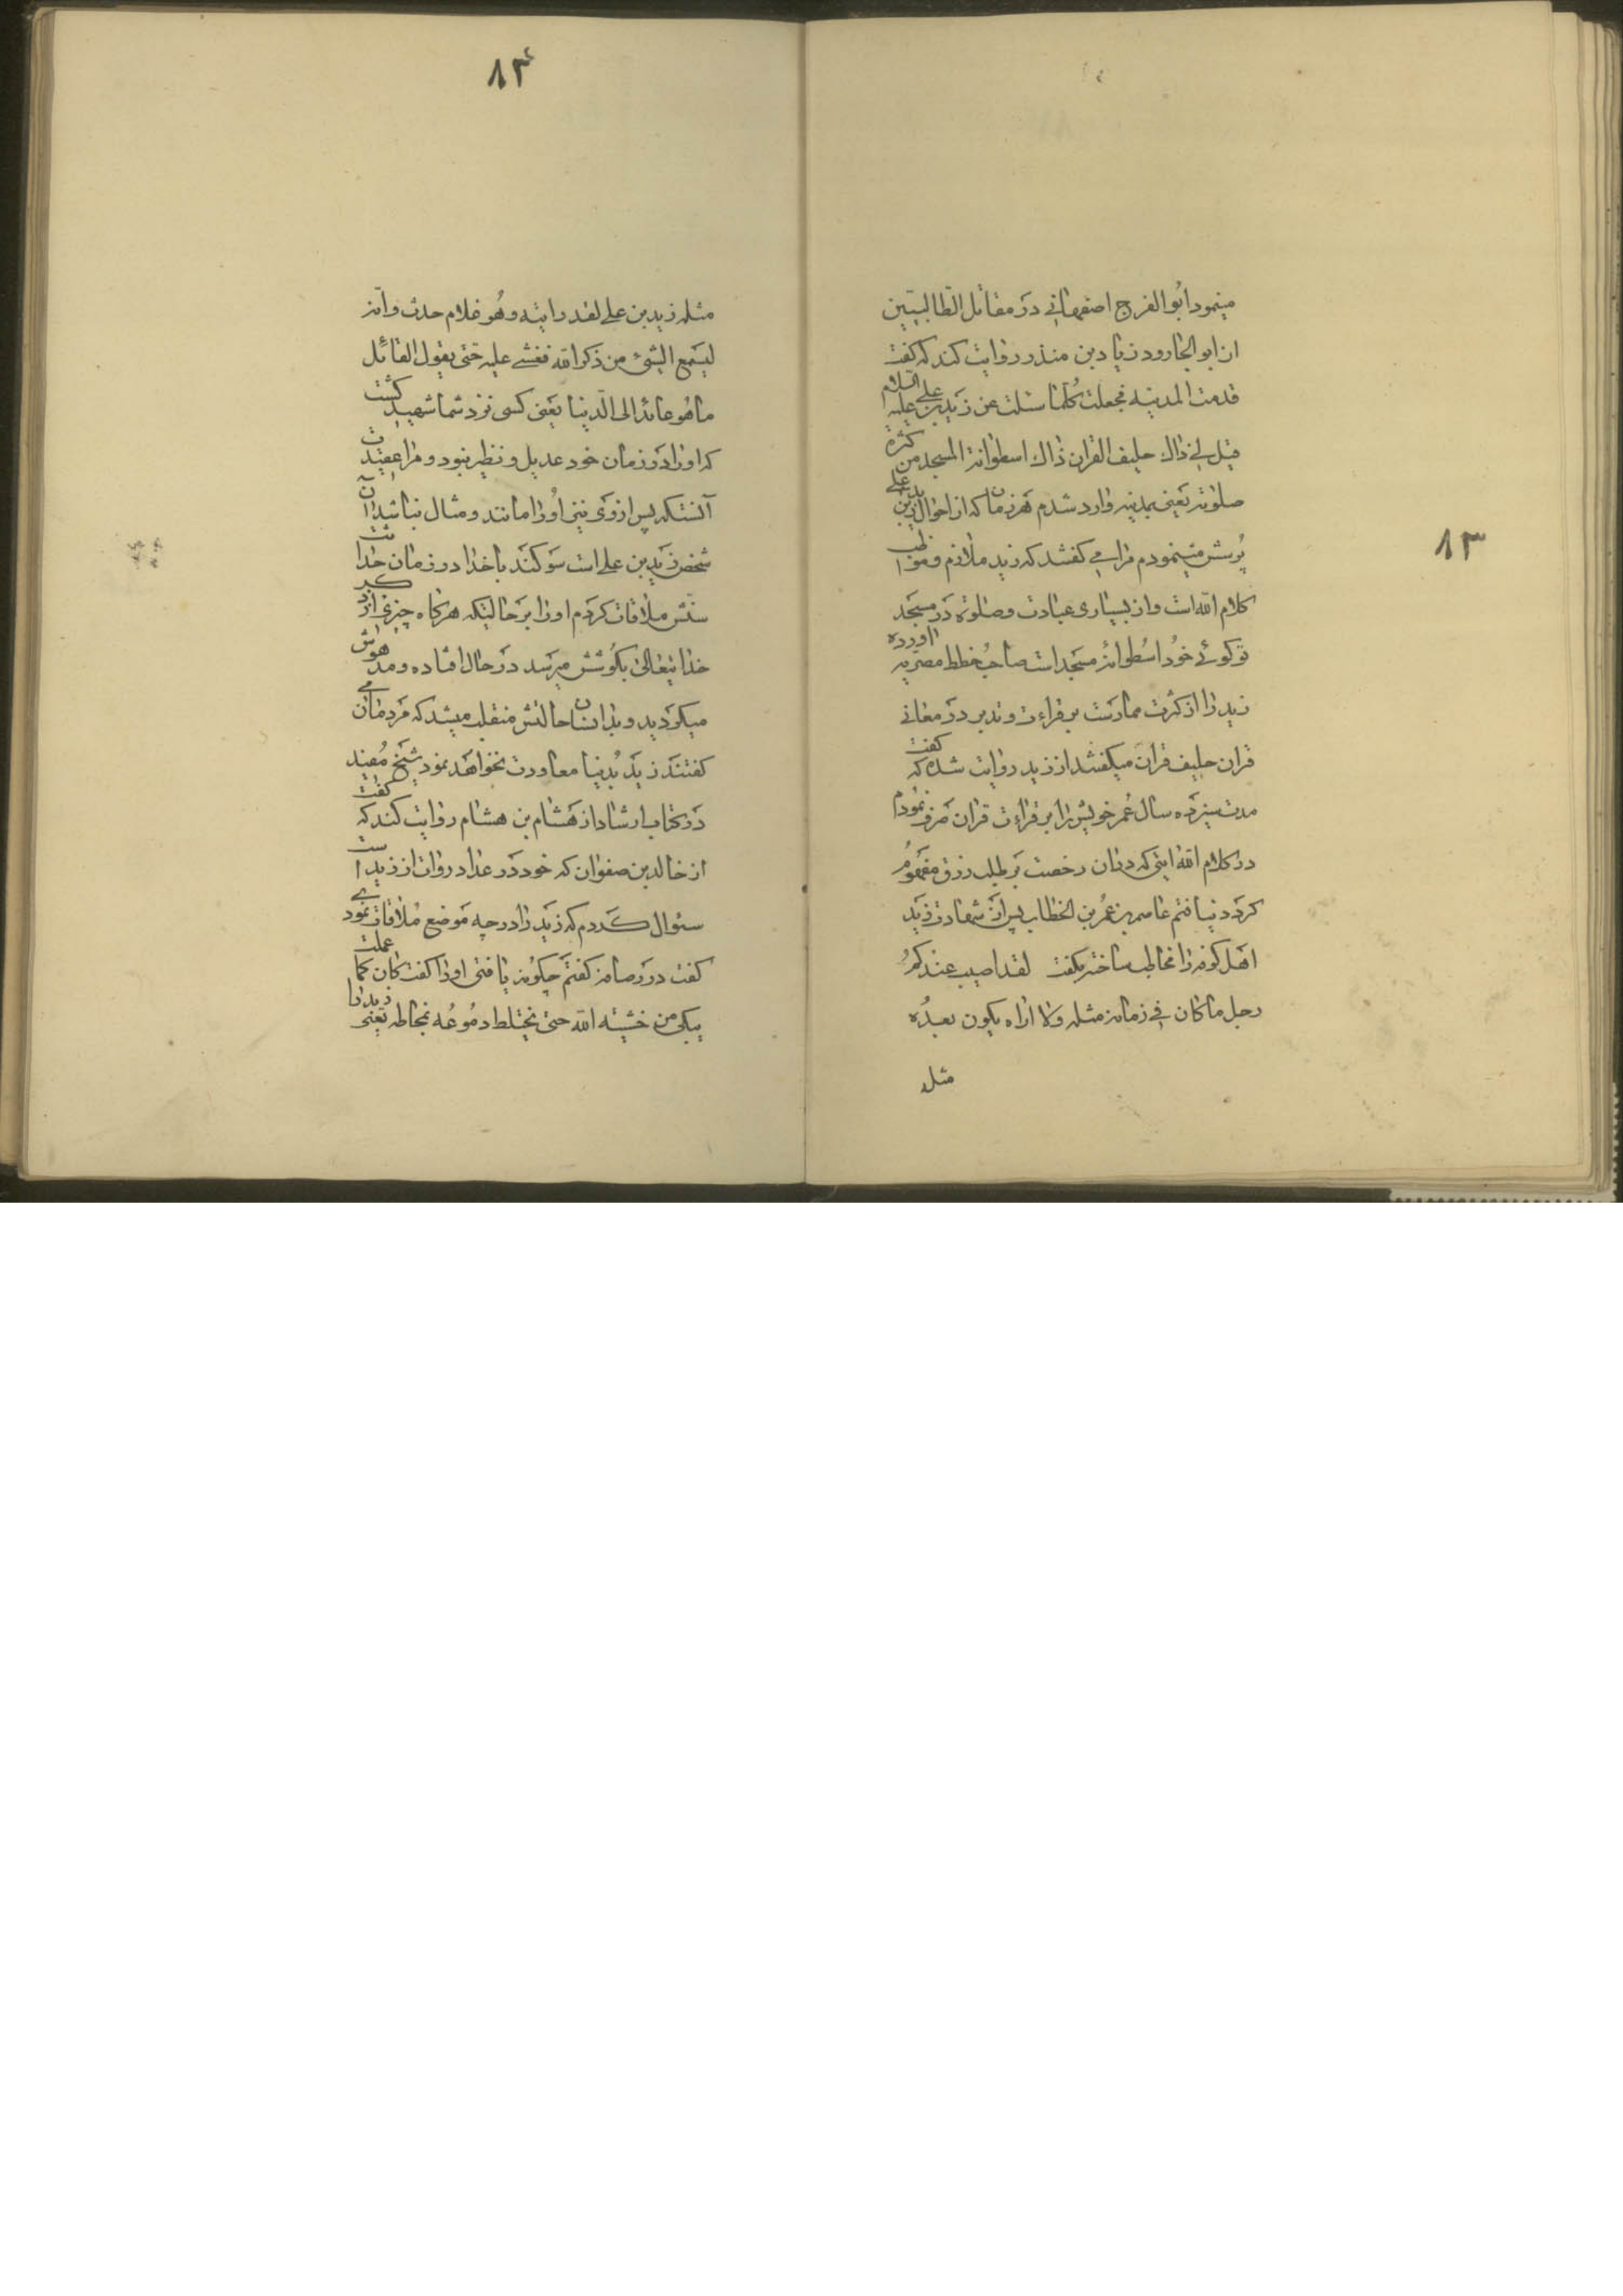 مینمود ابُو الفرج اصفهانی در مقاتل الطالبیین
از ابو الجارود زیاد بن منذر روایت کند که گفت
قدمت المدینه فجعلت کلما سئلت عن زید بن علی علیه السلام
قیل لی ذاك حلیف القران ذاك اسطوانة المسجد من کثرة
صلوته یعنی بمدینه وارد شدم هر زمان که از احوال زید بن علی
پُرسش مینمودم مرا می گفتند که زید ملازم و مواظب
کلام الله است و از بسیاری عبادت و صلوة در مسجد
تو گوئی خُود اسُطوانه مسجد است صاحبُ خطط مصریه اورده
زید را از کثرت ممارست بر قراءت و تدبر در معانی
قران حلیف قران میگفتند از زید روایت شده که گفت
مدت سیزده سال عُمر خویش را بر قراءت قران صرف نمودم
در کلام الله ایتی که در ان رخصت بر طلب رزق مفهوُم
گردد نیافتم عاصم بن عُمر بن الخطاب پس از شهادت زید
اهل کوفه را مخاطب ساخته بگفت لقد اصیب عندکمُ
رجل ما کان فی زمانه مثله ولا اراه یکون بعدُه
مثله
١٣
١٤
مثله زید بن علی لقد رایته وهُو غلام حدث وانه
لیسمع الشیئ من ذکر الله فغشی علیه حتی یقول القائل
ما هُو عائد الی الدنیا یعنی کسی نزد شما شهید گشت
که او را در زمان خود عدیل و نظیر نبود و مرا عقیدت
آنستکه پس از وی نیز اُو را مانند و مثال نباشد ان
شخص زید بن علی است سوگند با خدا در زمان حداثت
سنش ملاقات کردم او را بر حالتیکه هرگاه چیزی از ذکر
خدایتعالی بگوُشش میرسد در حال افتاده و مدهوش
میگردید و بدانسان حالتش منقلب میشد که مردمان می
گفتند زید بُدنیا معاودت نخواهد نمود شیخ مُفید
در کتاب ارشاد از هشام بن هشام روایت کند که گفت
از خالد بن صفوان که خود در عداد روات از زید است
سئوال کردم که زید را در چه موضع مُلاقات نمودی
گفت در رصافه گفتم چگوُنه یافتی او را گفت کان کما علمت
یبکی من خشیته الله حتی یختلط دمُوعُه بمخاطه یعنی زید را